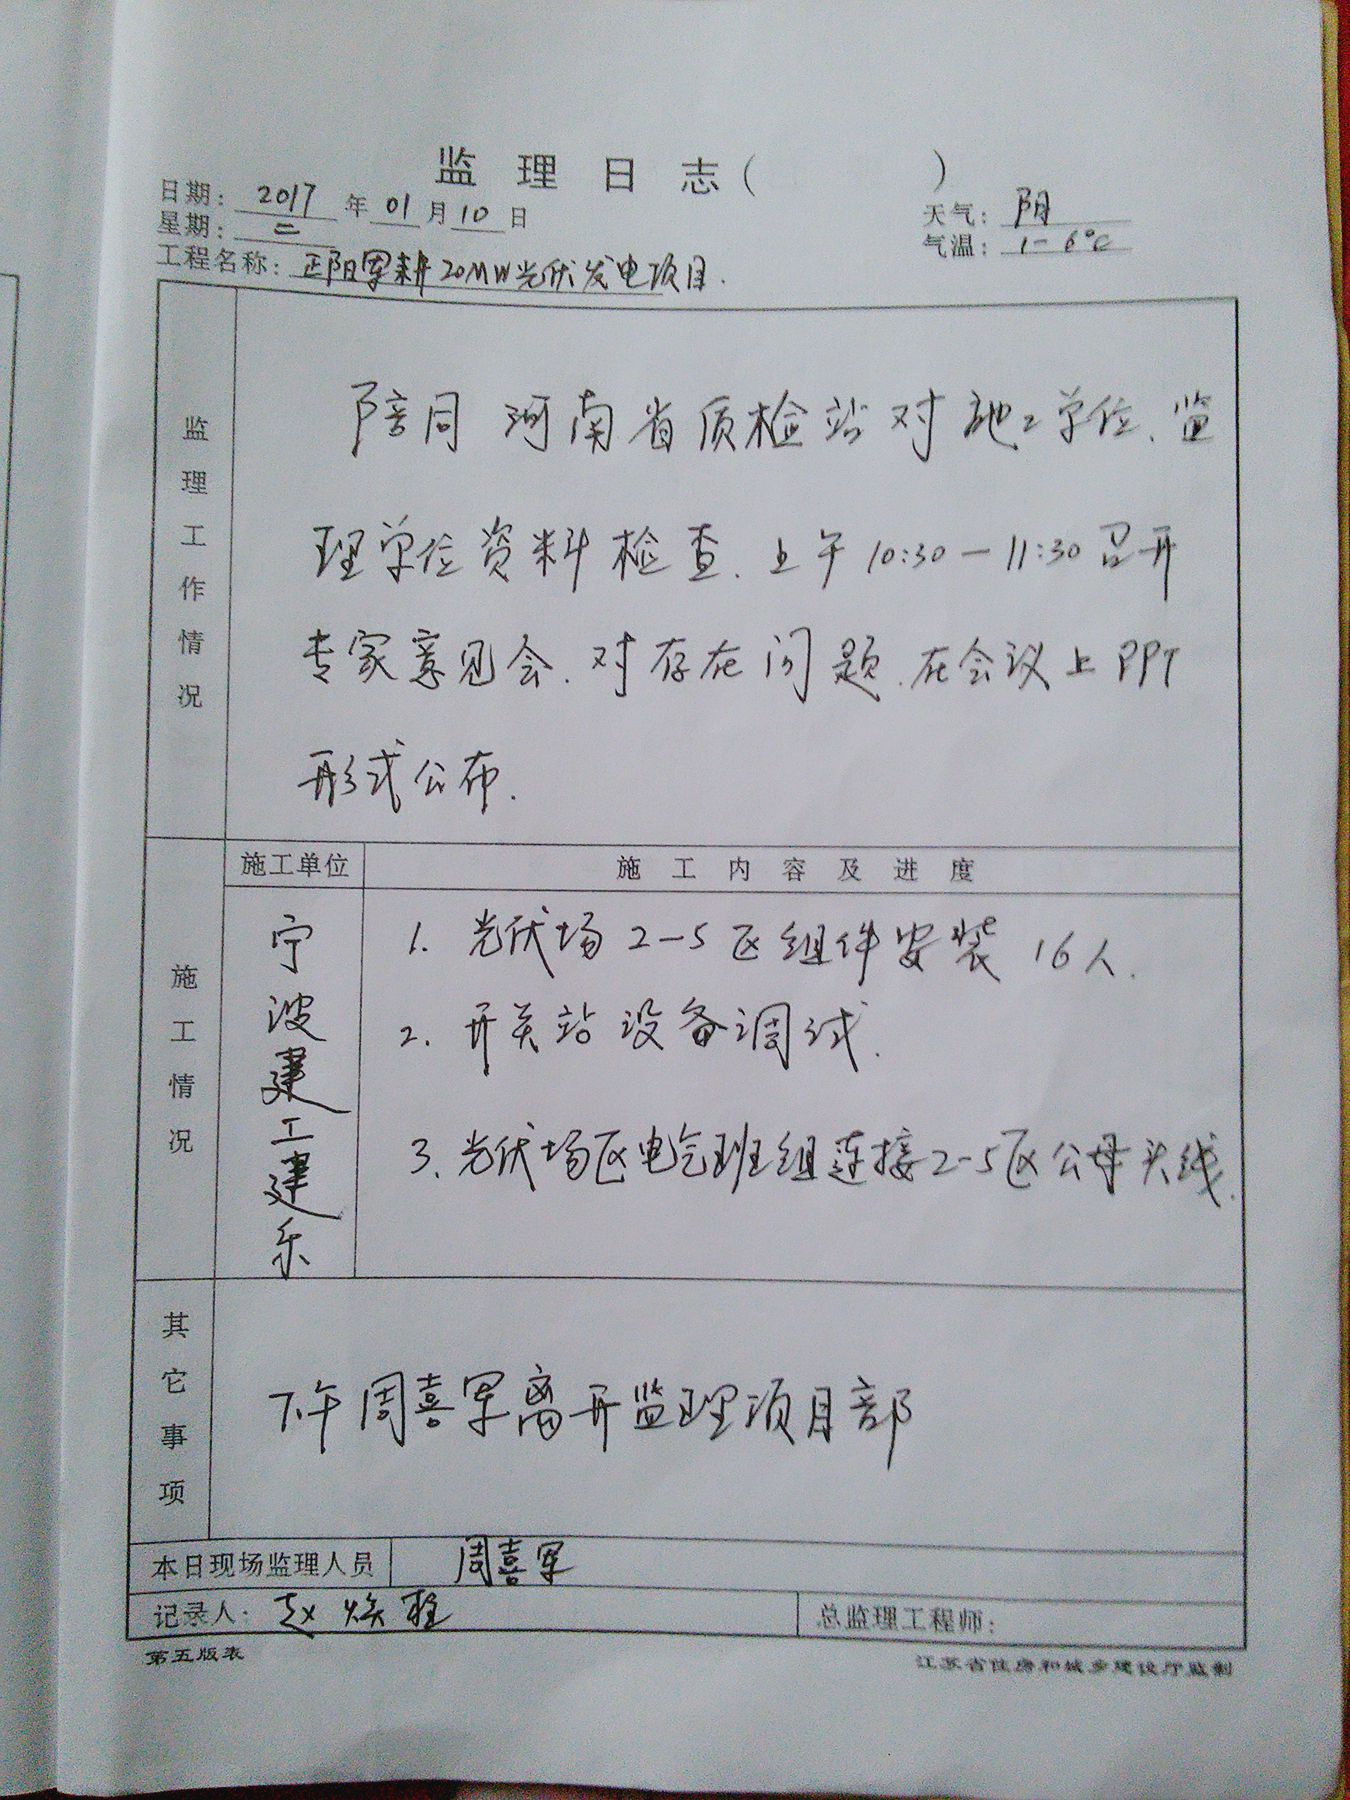 监理日志（ ）
日期：2017年01月10日
天气：阴
星期：二
气温：1-6℃
工程名称：正阳军耕20MW光伏发电项目.
监理工作情况
陪同河南省质检站对施工单位、监
理单位资料检查.上午10:30-11:30召开
专家意见会.对存在问题.在会议上PPT
形式公布.
施工情况
施工单位
施工内容及进度
宁波建工建乐
1. 光伏场2-5区组件安装16人.
2. 开关站设备调试.
3. 光伏场区电气班组连接2-5区公母头线.
其它事项
下午周喜军离开监理项目部
本日现场监理人员
周喜军
记录人：赵焕
总监理工程师：
第五版表
江苏省住房和城乡建设厅监制